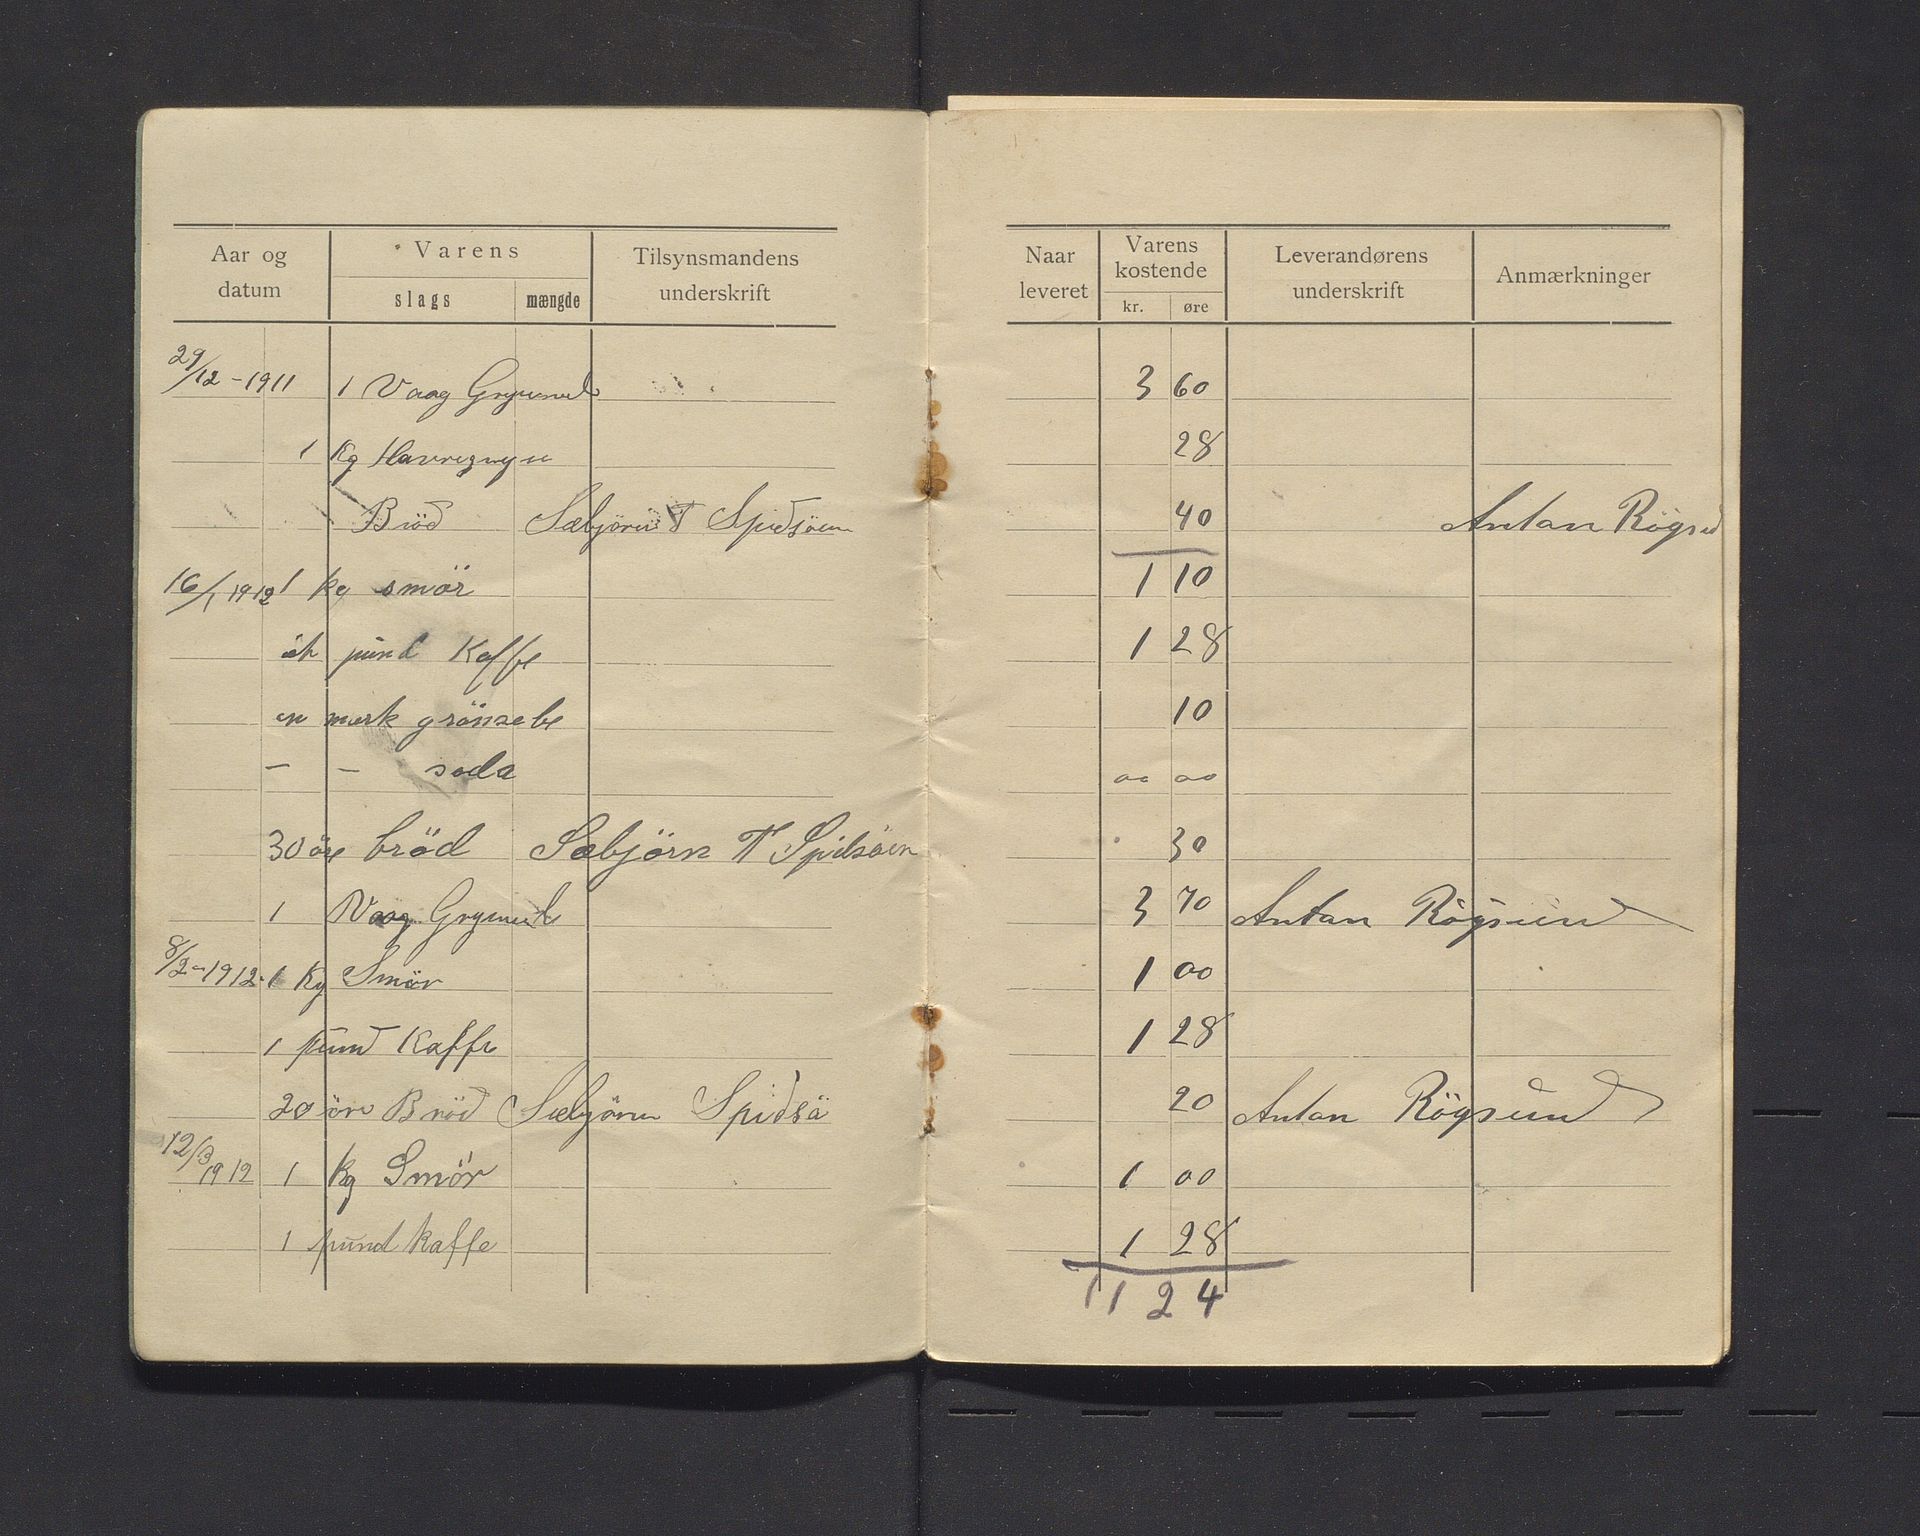 Aar og datum | Varens slags | mængde | Tilsynsmandens underskrift | Naar leveret | Varens kostende kr. | øre | Leverandørens underskrift | Anmærkninger
29/12-1911 1 Vaag Grynmel 3 60
1 Kg Havregryn 28
Bröd Sæbjörn T Spidsöen 40 Antan Rögsund
16/1 1912 1 kg smör 1 10
et pund Kaffe 1 28
en mark grönsebe 10
— — soda 00 00
30 öre bröd Sæbjörn T Spidsöen 30
1 Vaag Grynmel 3 70 Antan Rögsund
8/2-1912 1 Kg Smör 1 00
1 pund Kaffe 1 28
20 öre Bröd Sæbjörn Spidsö 20 Antan Rögsund
12/3 1912 1 kg Smör 1 00
1 pund kaffe 1 28
11 24